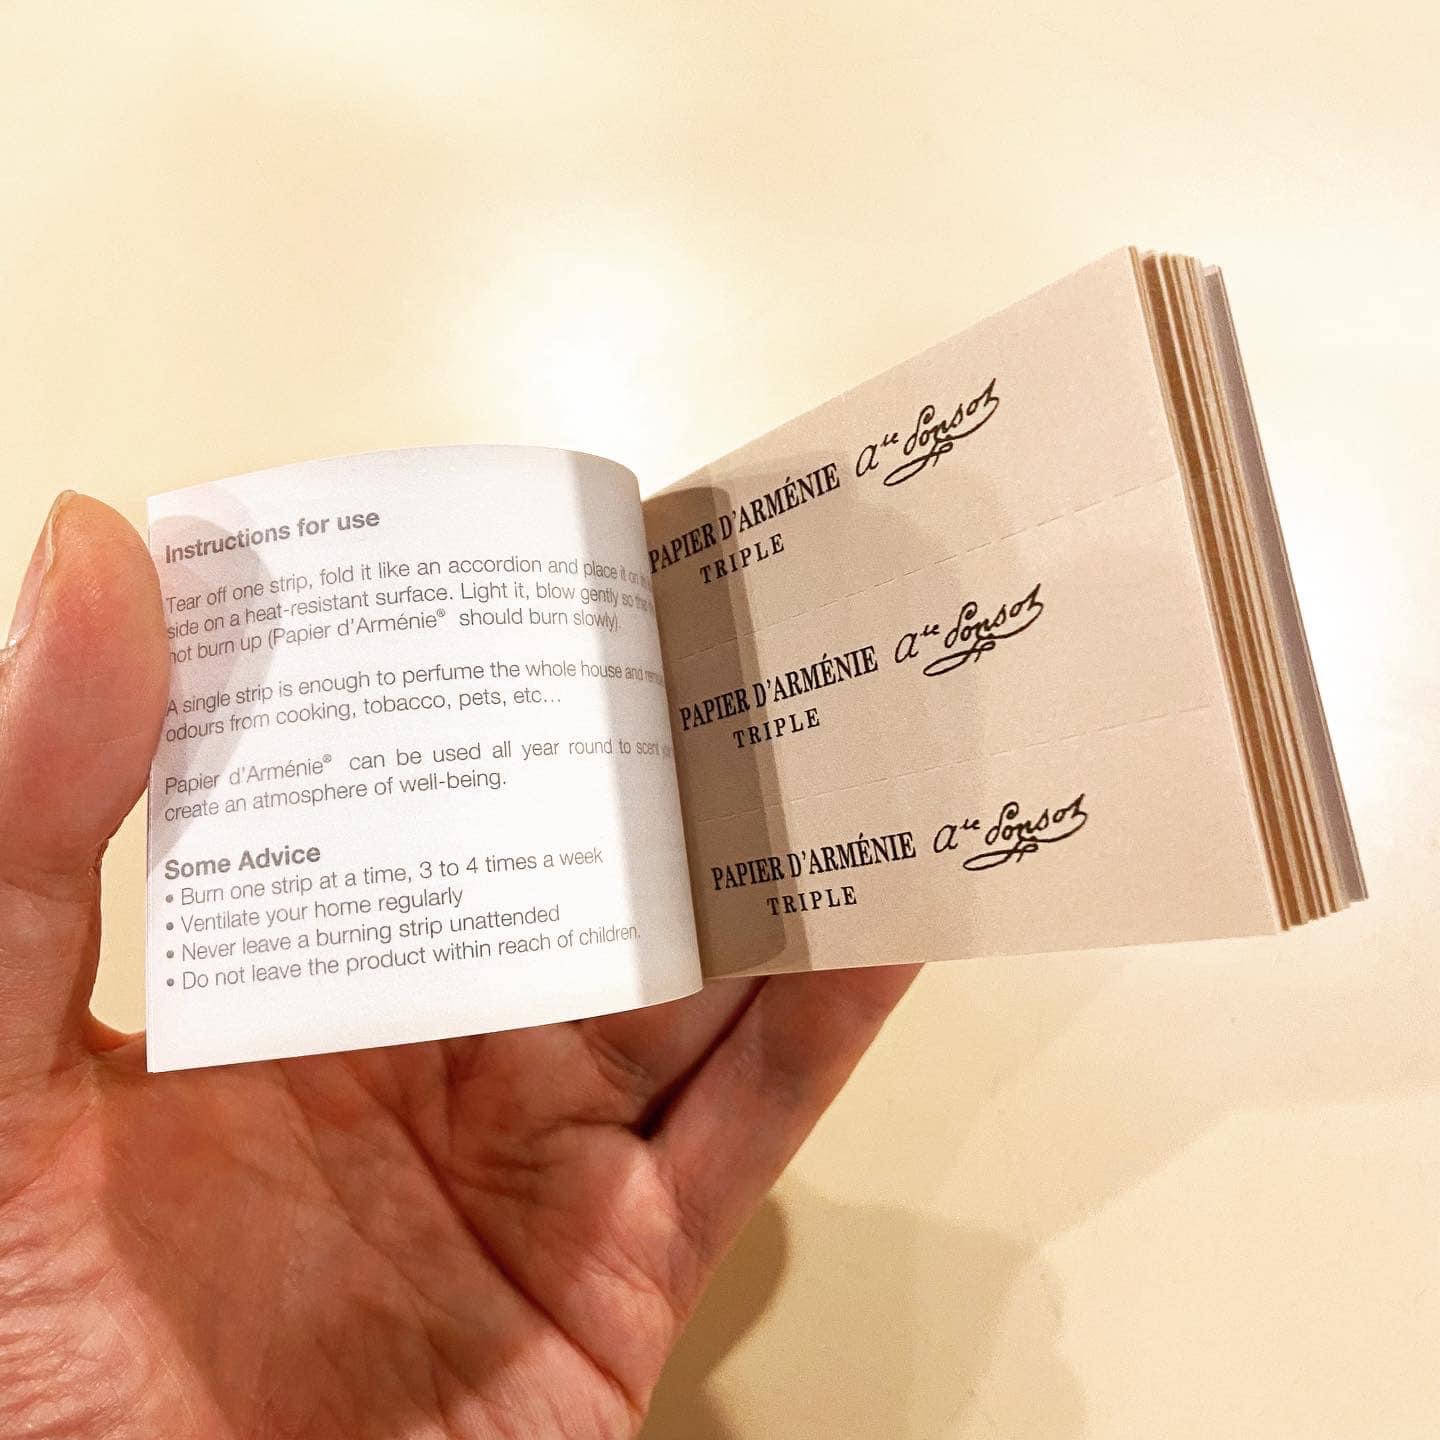 Instructions for use
Tear off one strip, fold it like an accordion and place it on
side on a heat-resistant surface. Light it, blow gently so
not burn up (Papier d'Arménie® should burn slowly).
A single strip is enough to perfume the whole house and
odours from cooking, tobacco, pets, etc...
Papier d'Arménie® can be used all year round to scent
create an atmosphere of well-being.
Some Advice
• Burn one strip at a time, 3 to 4 times a week
• Ventilate your home regularly
• Never leave a burning strip unattended
• Do not leave the product within reach of children.
PAPIER D'ARMÉNIE Ate Ponsot
TRIPLE
PAPIER D'ARMÉNIE Ate Ponsot
TRIPLE
PAPIER D'ARMÉNIE Ate Ponsot
TRIPLE